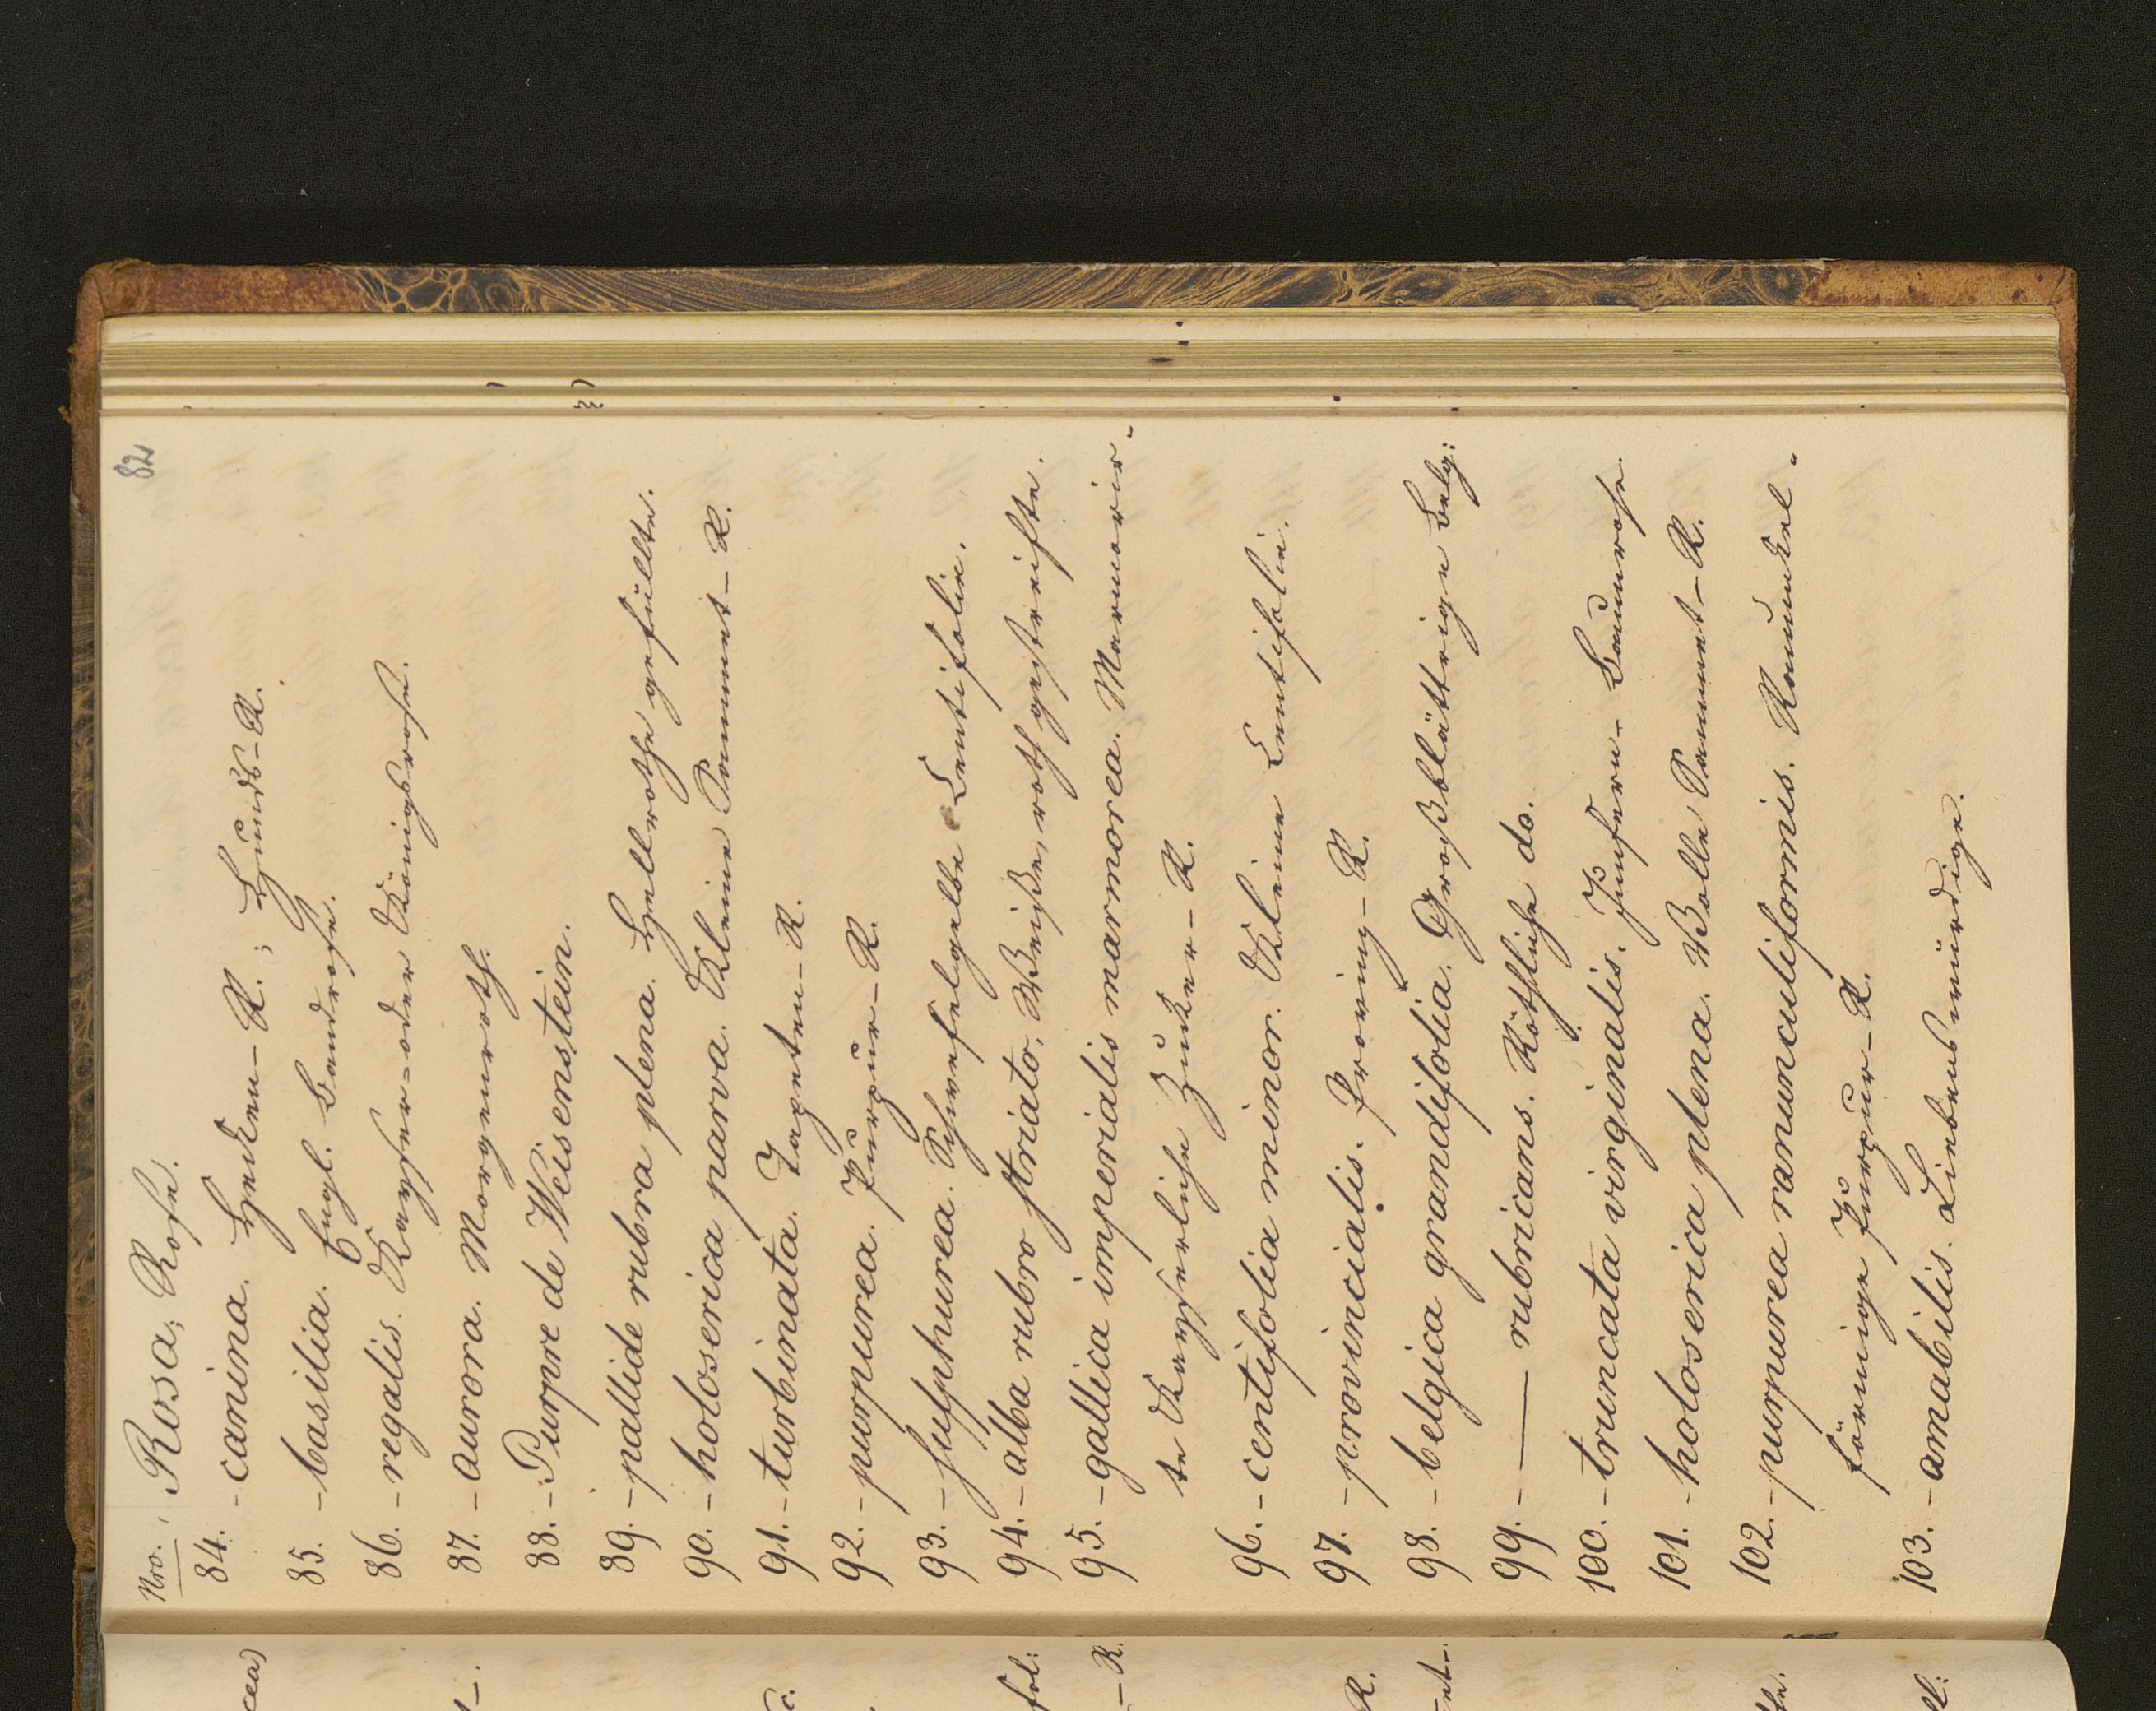 82
Nro. Rosa, Rose.
84. - canina. Hecken-R.; Hunds-R.
85. - basilia. Engl. Bandrose.
86. - regalis. Kayser- oder Königsrose.
87. - aurora. Morgenroth.
88. - Purpre de Weisenstein.
89. - pallide rubra plena. Hellrothe gefüllte.
90. - holoserica parva. Kleine Sammet-R.
91. - turbinata. Tapeten-R.
92. - purpurea. Purpur-R.
93. - sulphurea. Schwefelgelbe Centifolie.
94. - alba rubro striato, Weiße, roth gestreifte.
95. - gallica imperialis marmorea. Marmorir-
te Kayserliche Zucker-R.
96. - centifolia minor. Kleine Centifolie.
97. - provincialis. Provinz-R.
98. - belgica grandifolia. Großblättrige Belg:
99. - —— rubricans. Röthliche do.
100. - truncata virginalis. Junfern-Baumrose.
101. - holoserica plena. Volle Sammet-R.
102. - purpurea ranunculiformis. Ranunkel-
förmige Purpur-R.
103. - amabilis. Liebenswürdige.